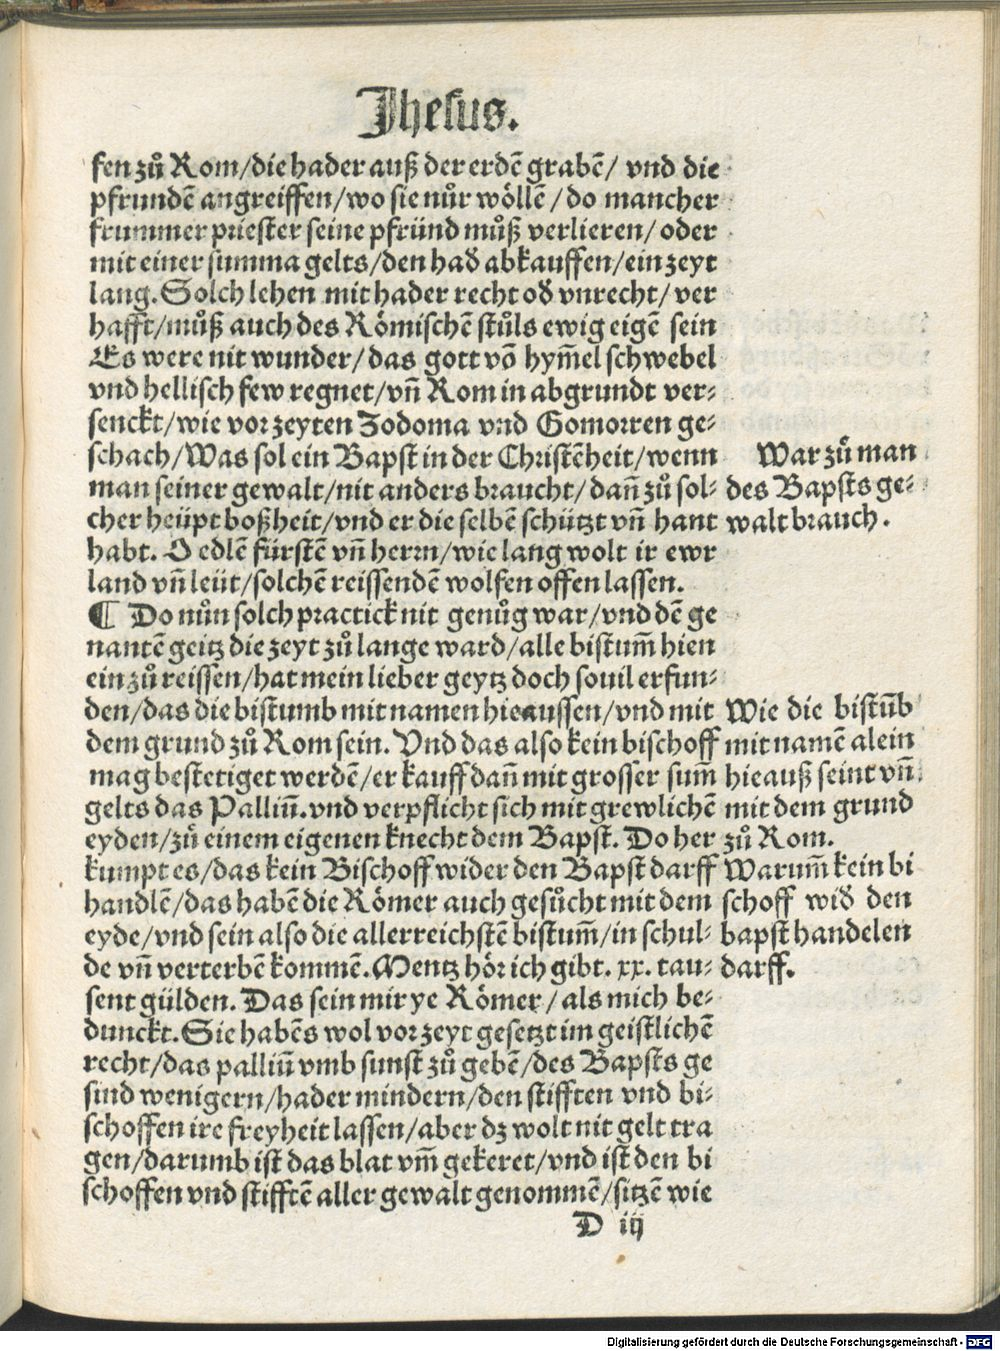 Jhesus.
fen zů Rom/die hader auß der erdē grabē/ vnd die
pfrundē angreiffen/wo sie nůr wöllē/do mancher
frummer priester seine pfründ můß verlieren/oder
mit einer summa gelts/den had̄ abkauffen/ein zeyt
lang. Solch lehen mit hader recht od̄ vnrecht/ver
hafft/můß auch des Römischē stůls ewig eigē sein
Es were nit wunder/das gott vō hym̄el schwebel
vnd hellisch few regnet/vn̄ Rom in abgrundt ver⸗
senckt/wie vor zeyten Zodoma vnd Gomorren ge⸗
schach/Was sol ein Bapst in der Christēheit/wenn
man seiner gewalt/nit anders braucht/dan̄ zů sol⸗
cher heüpt boßheit/vnd er die selbē schützt vn̄ hant
habt. O edlē fürstē vn̄ herrn/wie lang wolt ir ewr
land vn̄ leüt/solchē reissendē wolfen offen lassen.
War zů man
des Bapsts ge⸗
walt brauch.
¶ Do nůn solch practick nit genůg war/vnd dē ge
nantē geitz die zeyt zů lange ward/alle bistum̄ hien
ein zů reissen/hat mein lieber geytz doch souil erfun⸗
den/das die bistumb mit namen hieaussen/vnd mit
dem grund zů Rom sein. Vnd das also kein bischoff
mag bestetiget werdē/er kauff dan̄ mit grosser sum̄
gelts das Palliū.vnd verpflicht sich mit grewlichē
eyden/zů einem eigenen knecht dem Bapst. Do her
kumpt es/das kein Bischoff wider den Bapst darff
handlē/das habē die Römer auch gesůcht mit dem
eyde/vnd sein also die allerreichstē bistum̄/in schul⸗
de vn̄ verterbē kommē. Mentz hör ich gibt. xx. tau⸗
sent gülden. Das sein mir ye Römer/als mich be⸗
dunckt. Sie habēs wol vor zeyt gesetzt im geistlichē
recht/das palliū vmb sunst zů gebē/des Bapsts ge
sind wenigern/hader mindern/den stifften vnd bi⸗
schoffen ire freyheit lassen/aber dz wolt nit gelt tra
gen/darumb ist das blat vm̄ gekeret/vnd ist den bi
schoffen vnd stifftē aller gewalt genommē/sitzē wie
Wie die bistūb
mit namē alein
hieauß seint vn̄
mit dem grund
zů Rom.
Warum̄ kein bi
schoff wid̄ den
bapst handelen
darff.
D iij
Digitalisierung gefördert durch die Deutsche Forschungsgemeinschaft - DFG